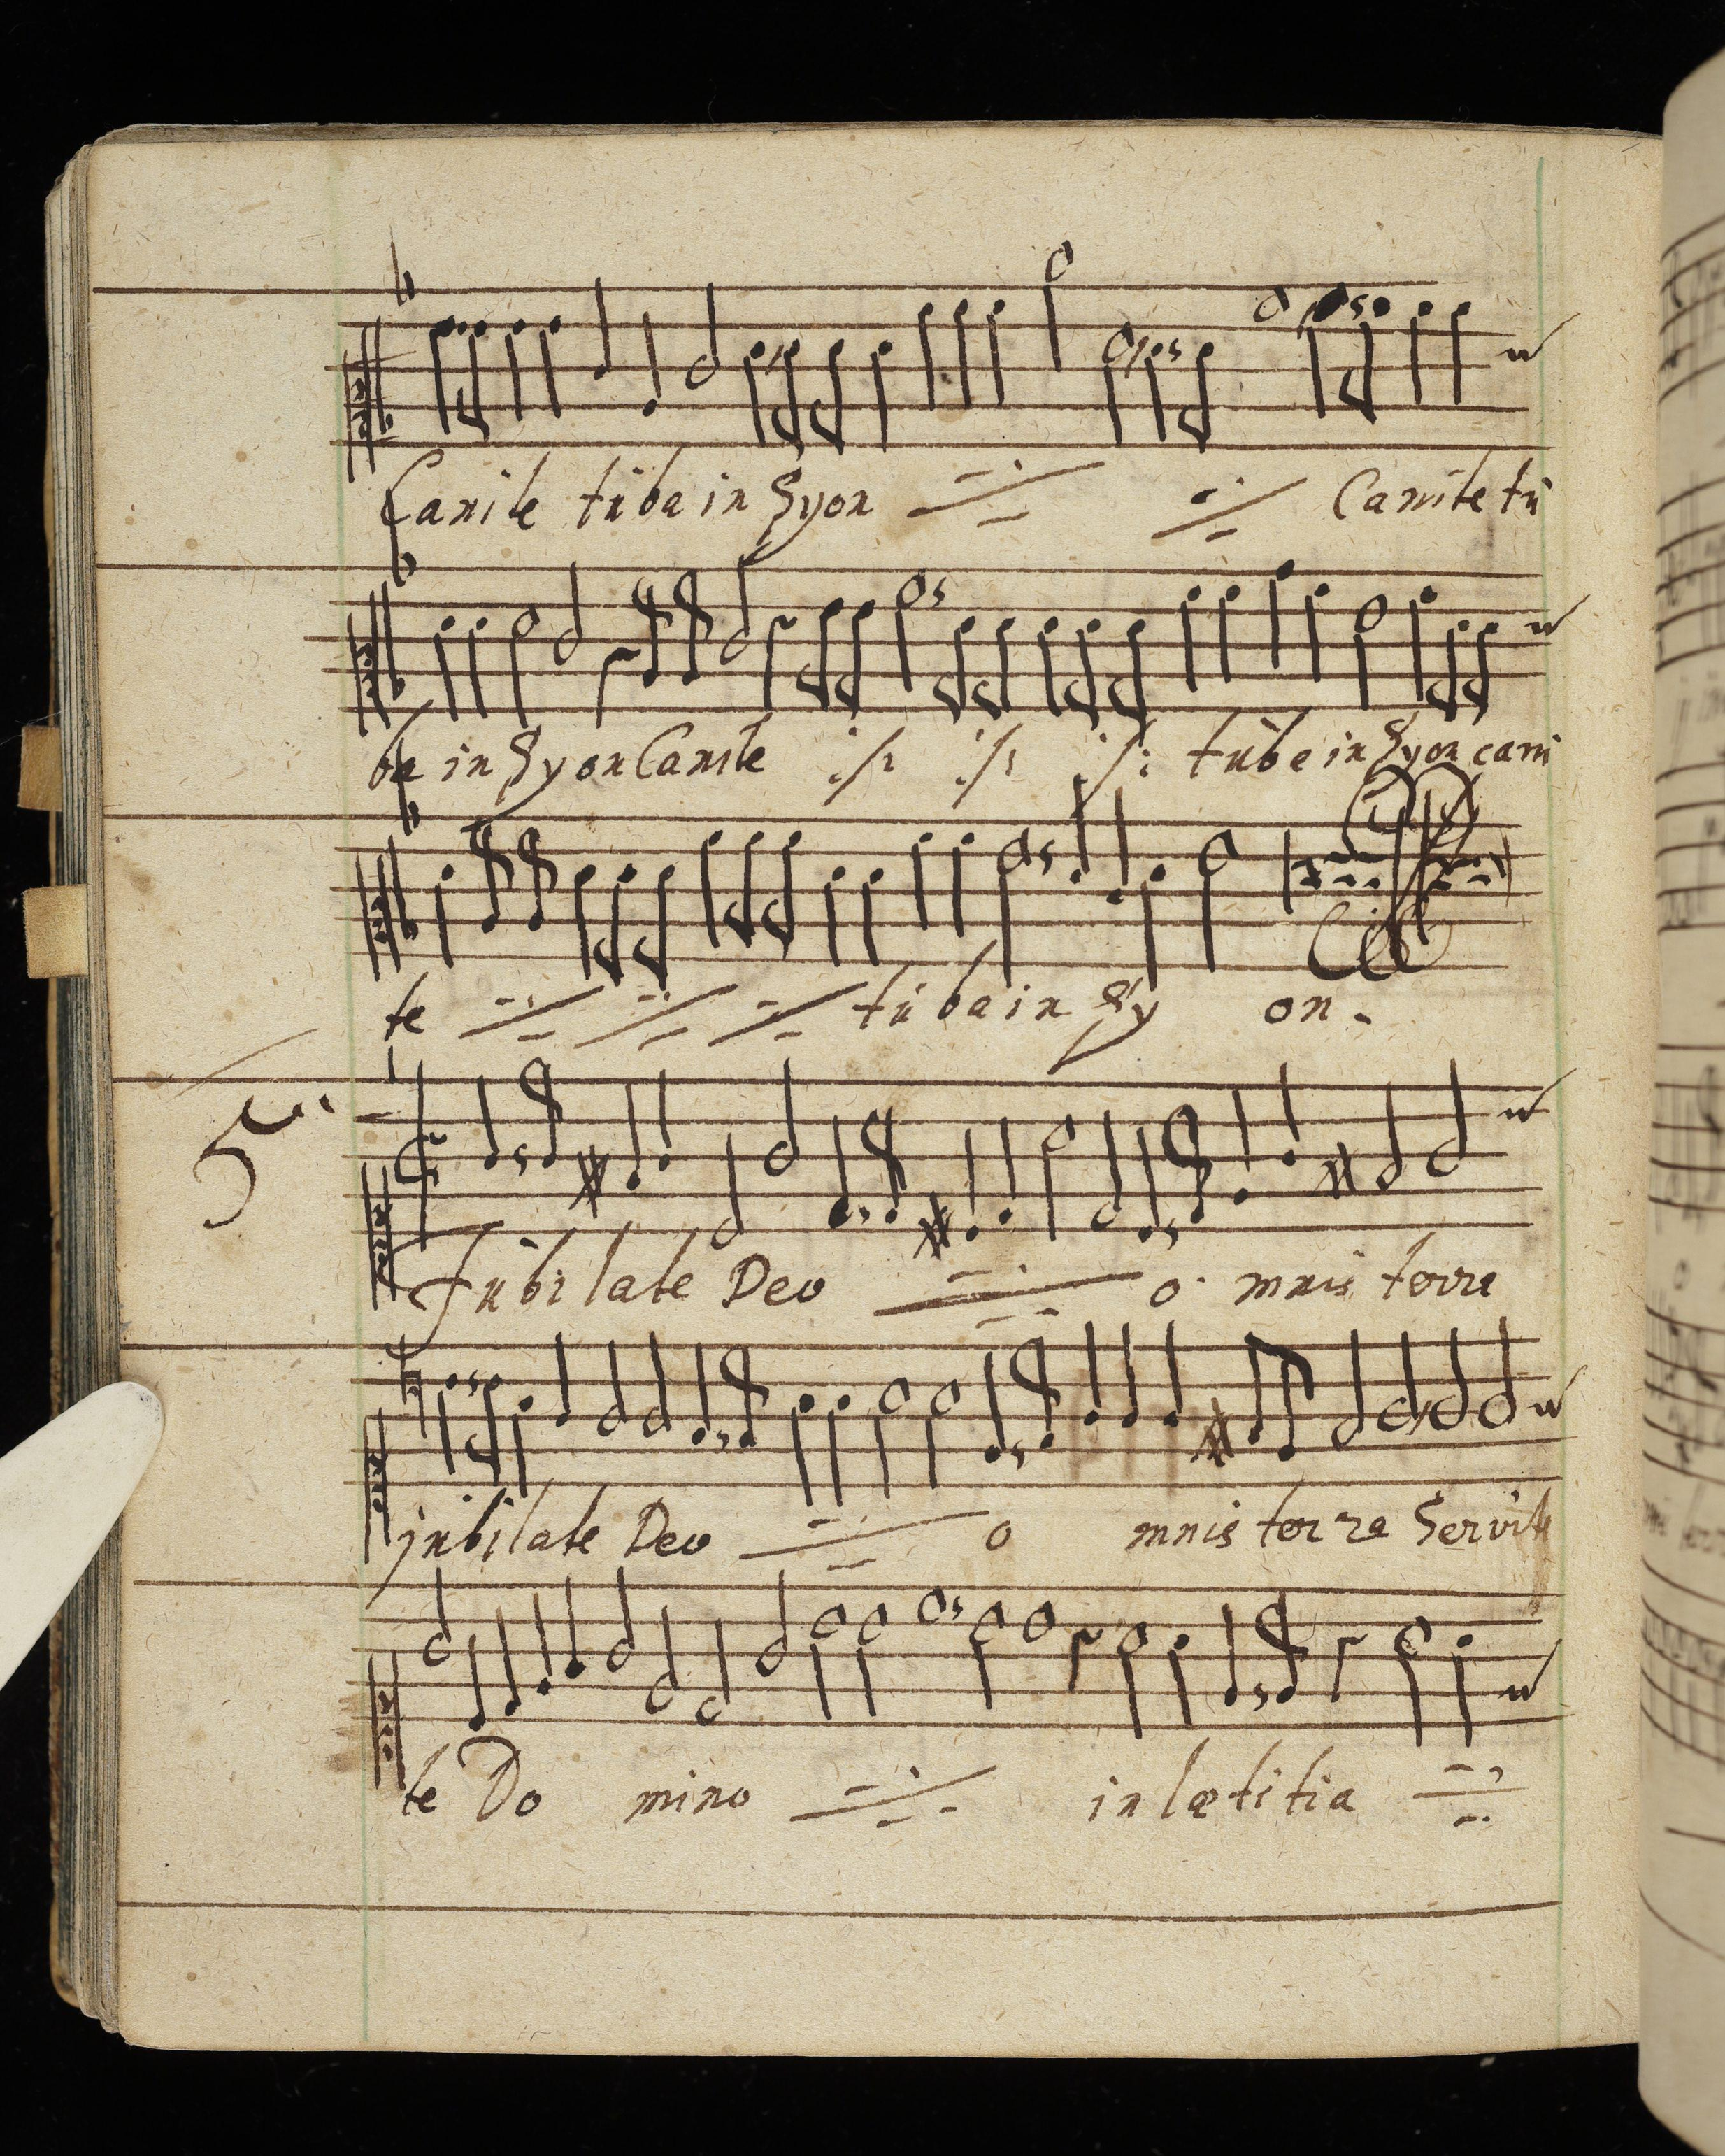 Canite tùba in Syon Canite tù
ba in Syon Canite tùba in Syon cani
te tùba in Sy on.
5.
Jùbilate Deo o mnis terra
jùbilate Deo o mnis terra Servite
te Do mino in lætitia